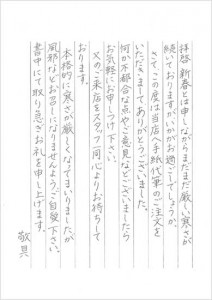 拝啓 新春とは申しながらまだまだ厳しい寒さが
続いておりますがいかがお過ごしでしょうか。
さて この度は当店へ手紙代筆のご注文を
いただきましてありがとうございました。
何か不都合な点やご意見などございましたら
お気軽にお申しつけ下さい。
又のご来店をスタッフ一同心よりお待ちして
おります。
本格的に寒さが厳しくなてまいりましたが
風邪などお召しになりませんようご自愛下さい。
書中にて取り急ぎお礼を申し上げます。
敬具